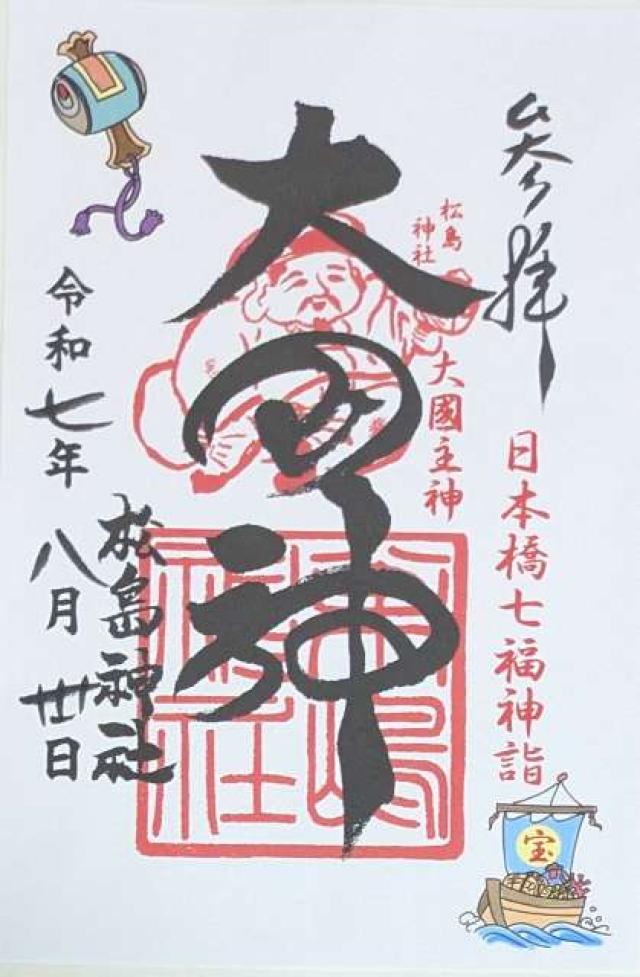 参拝
日本橋七福神詣
松島
神社
大國主神
大国神
松島神社
令和七年
八月
廿日
宝